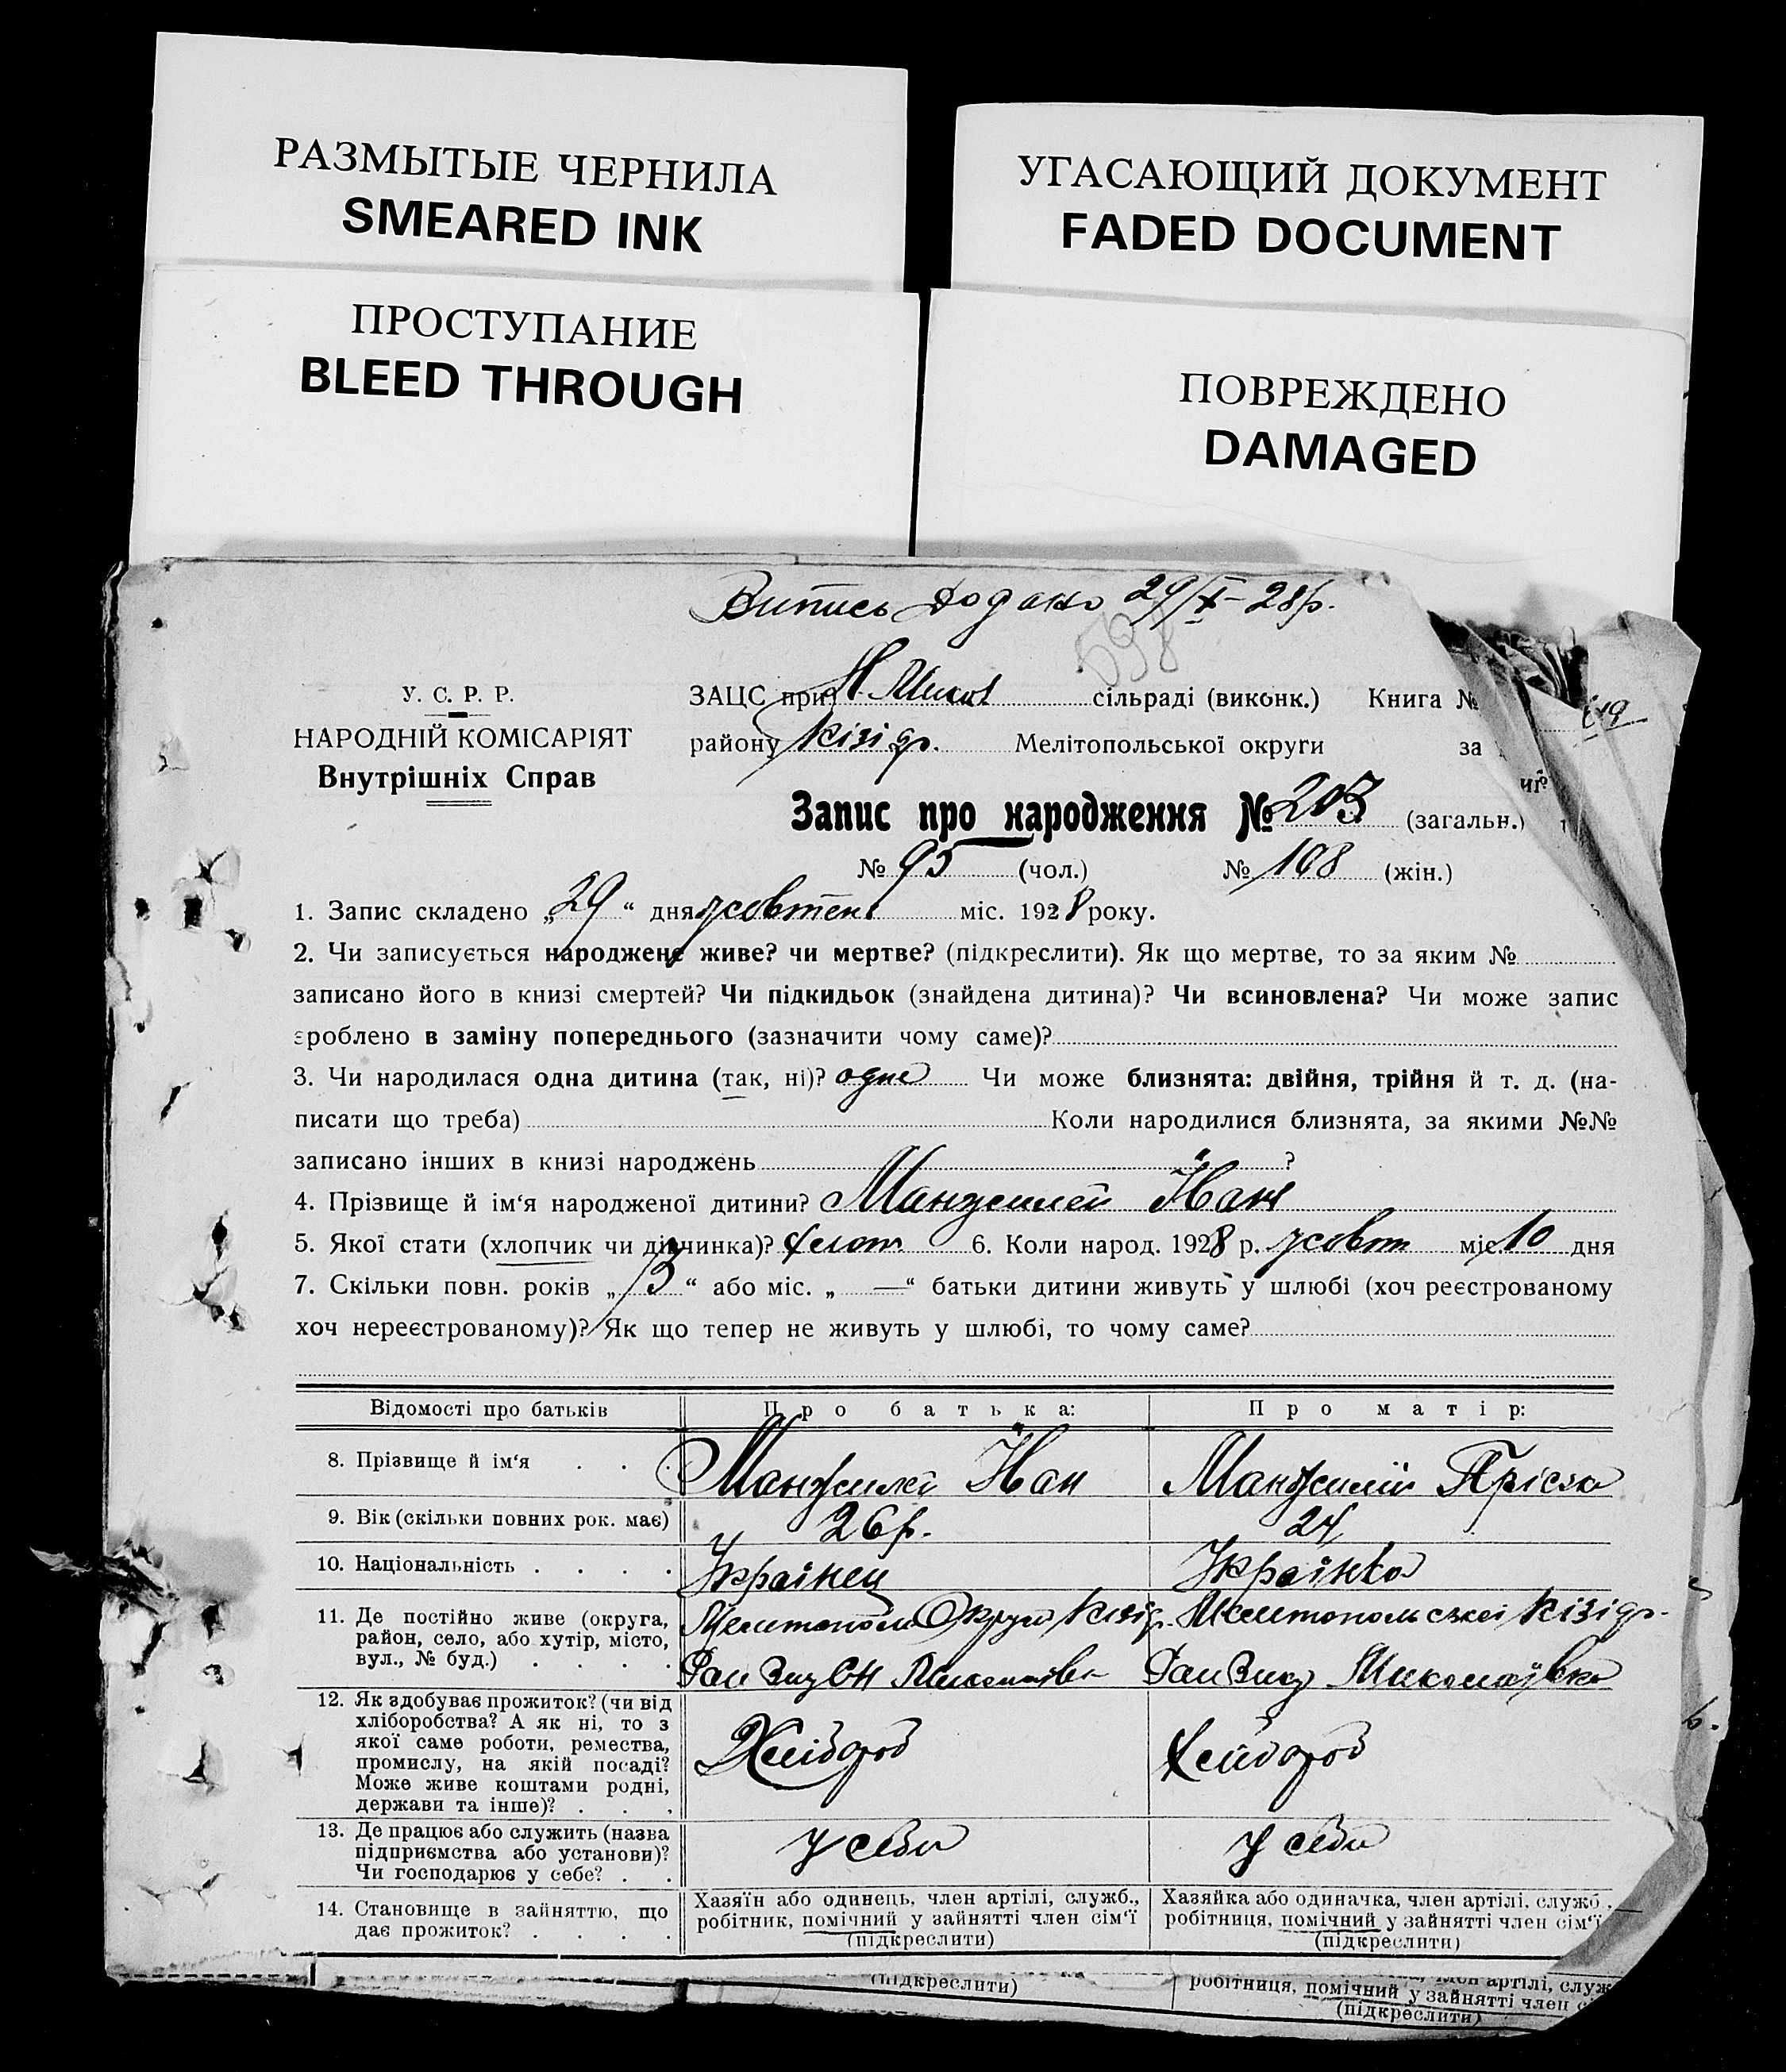 РАЗМЫТЫЕ ЧЕРНИЛА
SMEARED INK
ПРОСТУПАНИЕ
BLEED THROUGH
УГАСАЮЩИЙ ДОКУМЕНТ
FADED DOCUMENT
ПОВРЕЖДЕНО
DAMAGED
Випись додано 29/X-28р.
598
У. С. Р. Р.
НАРОДНІЙ КОМІСАРІЯТ
Внутрішніх Справ
ЗАЦС при Н Микол сільраді (виконк.) Книга №
району Кізідр. Мелітопольської округи за
Запис про народження № 203 (загальн.)
№ 95 (чол.) № 108 (жін.)
1. Запис складено „29“ дня жовтень міс. 1928 року.
2. Чи записується народжене живе? чи мертве? (підкреслити). Як що мертве, то за яким №
записано його в книзі смертей? Чи підкидьок (знайдена дитина)? Чи всиновлена? Чи може запис
зроблено в заміну попереднього (зазначити чому саме)?
3. Чи народилася одна дитина (так, ні)? одне Чи може близнята: двійня, трійня й т. д. (на-
писати що треба) Коли народилися близнята, за якими №№
записано інших в книзі народжень ?
4. Прізвище й ім‘я народженої дитини? Манжилей Іван
5. Якої стати (хлопчик чи дівчинка)? Хлоп. 6. Коли народ. 1928 р. жовт міс. 10 дня
7. Скільки повн. років „3“ або міс. „—“ батьки дитини живуть у шлюбі (хоч реєстрованому
хоч нереєстрованому)? Як що тепер не живуть у шлюбі, то чому саме?
Відомості про батьків Про батька: Про матір:
8. Прізвище й ім‘я . . . Манжилей Іван Манжилій Пріська
9. Вік (скільки повних рок. має) 26р. 24
10. Національність . . . . Українец Українка
11. Де постійно живе (округа,
район, село, або хутір, місто,
вул., № буд.) . . . .
Мелитополь Округи Кізідр.
Мелитопольської Кізідр.
Миколаївка
12. Як здобуває прожиток? (чи від
хліборобства? А як ні, то з
якої саме роботи, ремества,
промислу, на якій посаді?
Може живе коштами родні,
держави та інше)? . . .
Хлібороб
Хлібороб
13. Де працює або служить (назва
підприємства або установи)?
Чи господарює у себе? . .
У себи
У себи
14. Становище в зайняттю, що
дає прожиток? . . . .
Хазяїн або одинець, член артілі, служб.,
робітник, помічний у зайнятті член сім‘ї
(підкреслити)
Хазяйка або одиначка, член артілі, служб.,
робітниця, помічний у зайнятті член сім‘ї
(підкреслити)
(підкреслити)
артілі, служ
робітниця, помічний у зайнятті член
(підкреслити)